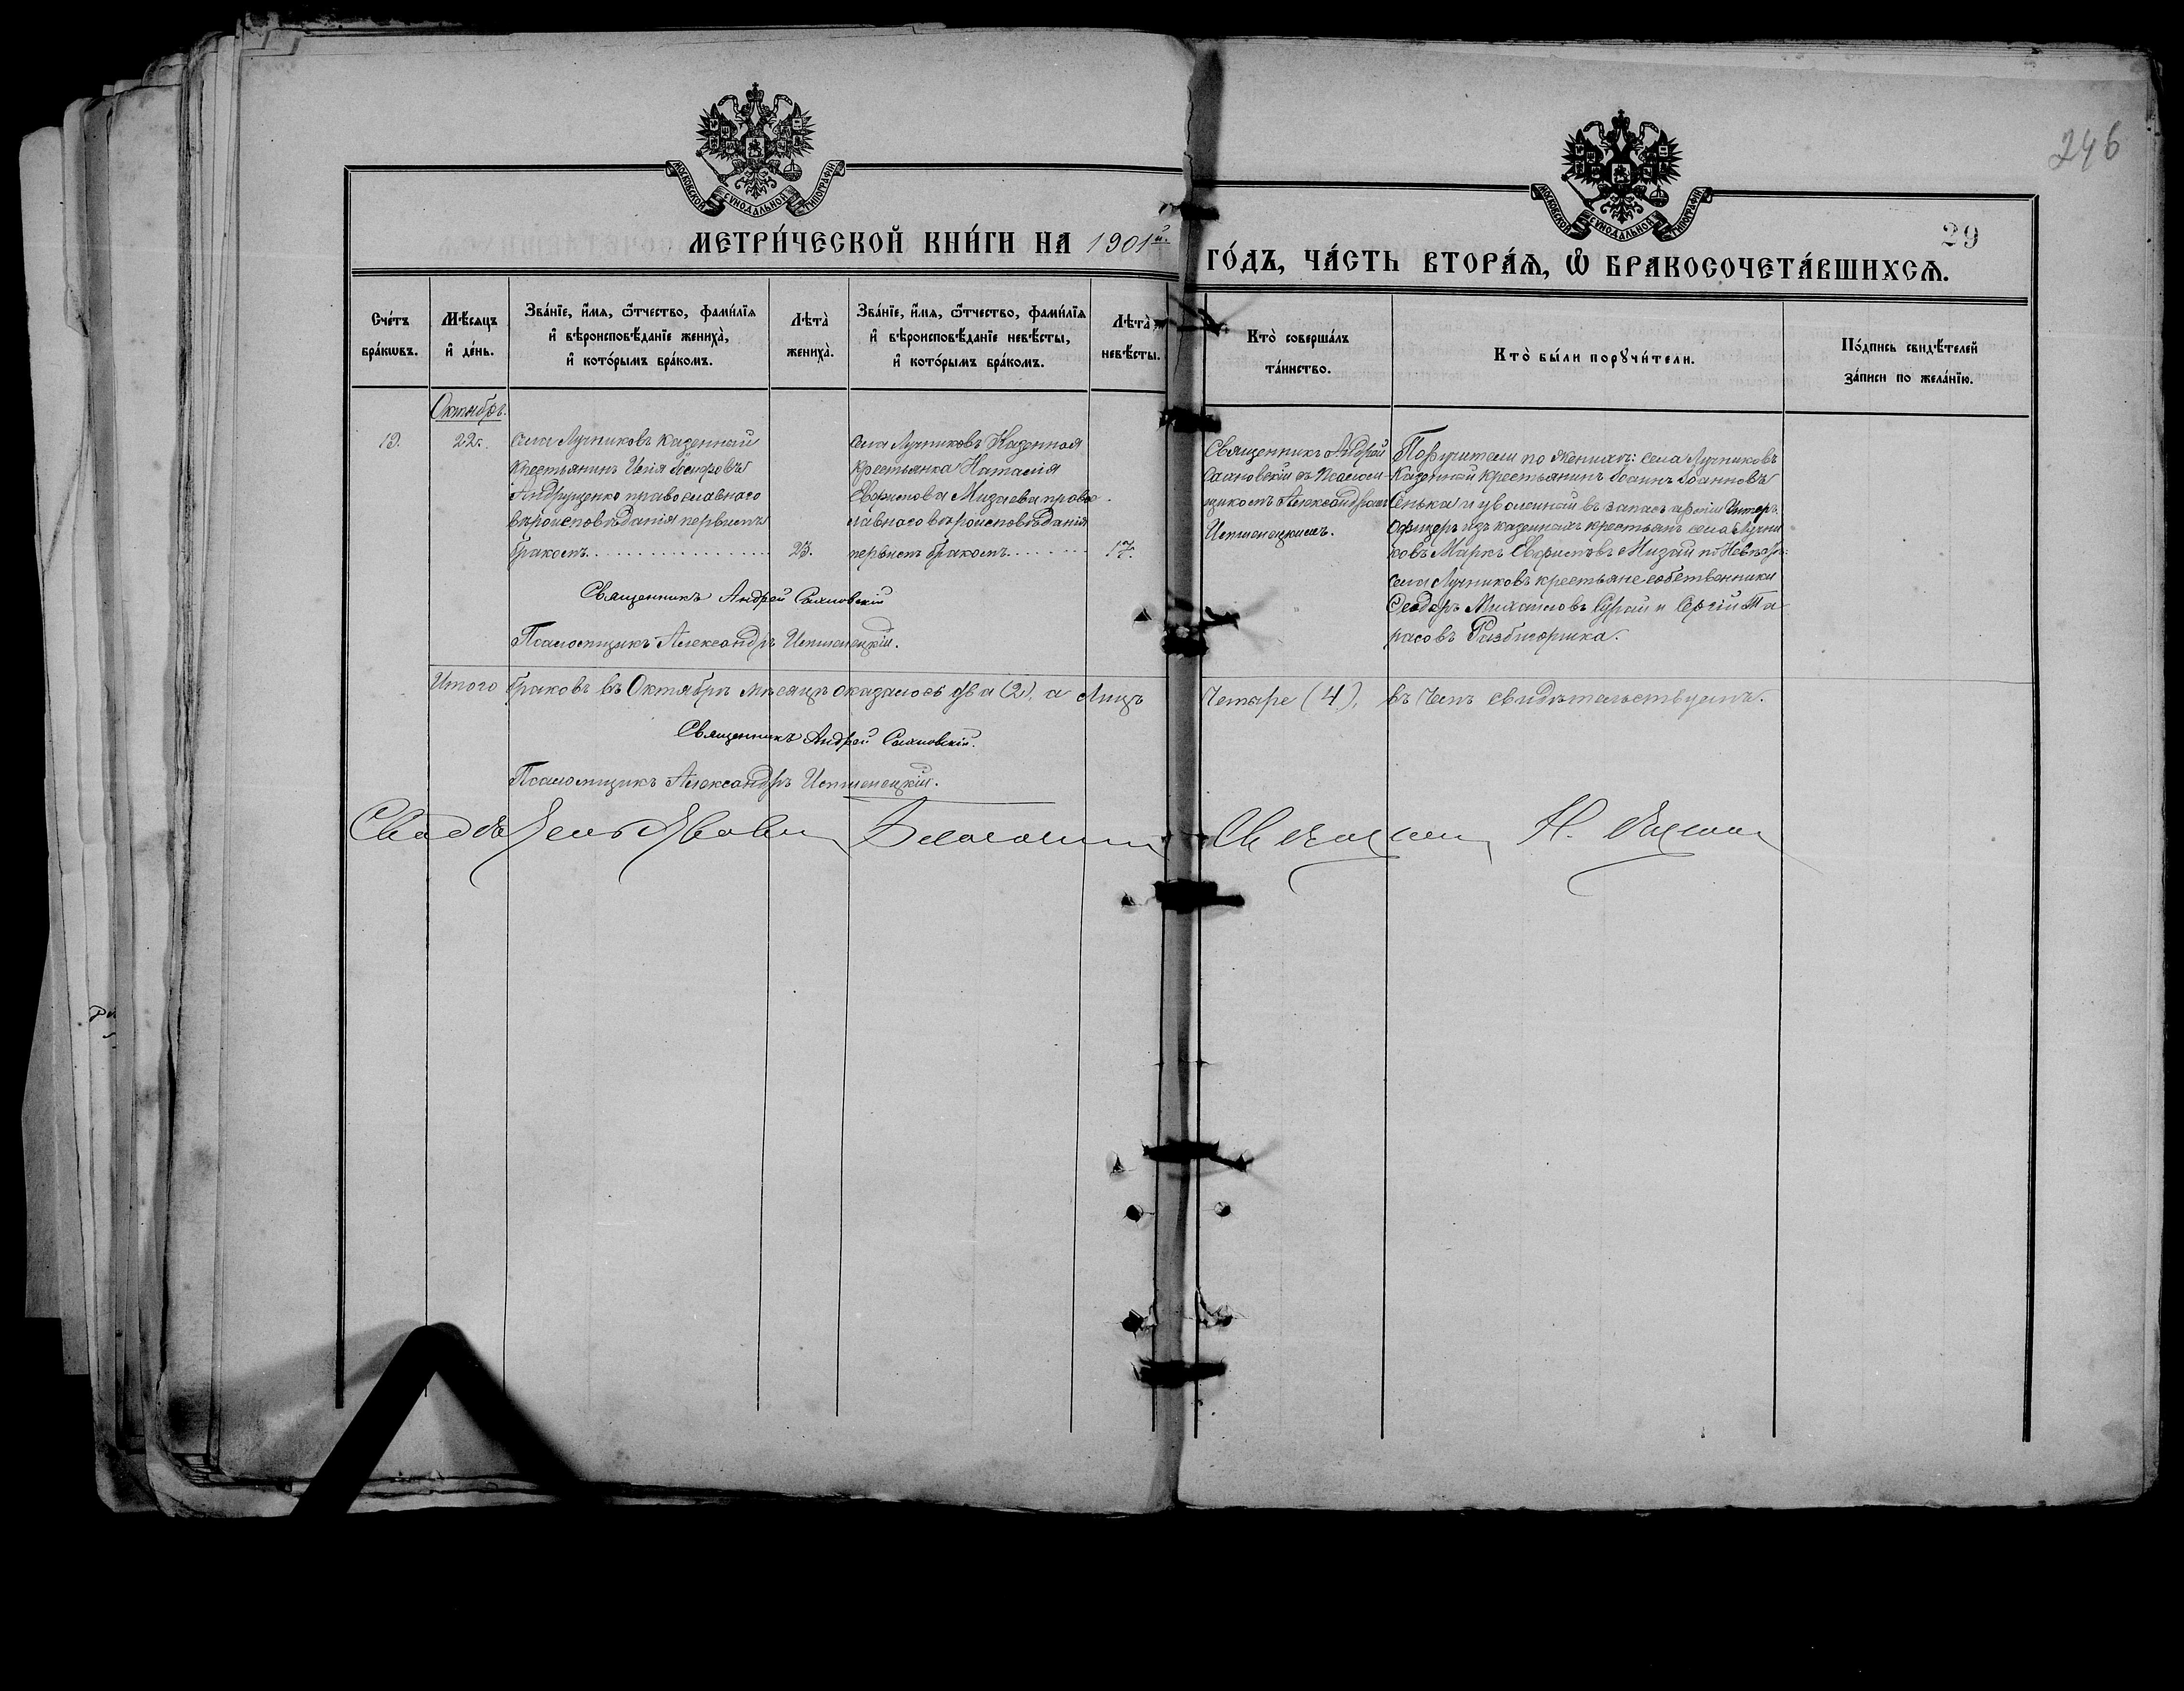 246
29
МОСКОВСКОЙ СѴНОДАЛЬНОЙ ТИПОГРАФІИ
МОСКОВСКОЙ СѴНОДАЛЬНОЙ ТИПОГРАФІИ
МЕТРИ́ЧЕСКОЙ КНИ́ГИ НА 1901й. ГО́ДЪ, ЧА́СТЬ ВТОРА́Ѧ, Ѡ БРАКОСОЧЕТА́ВШИХСѦ.
Сче́тъ
бра́кѡвъ.
Мѣ́сяцъ
и҆ де́нь.
Зва́нїе, и҆́мя, ѻ҆́тчество, фами́лїя
и҆ вѣроисповѣ́данїе жениха̀,
и҆ кото́рымъ бра́комъ.
Лѣта̀
жениха̀.
Зва́нїе, и҆́мя, ѻ҆́тчество, фами́лїя
и҆ вѣроисповѣ́данїе невѣ́сты,
и҆ кото́рымъ бра́комъ.
Лѣта̀
невѣ́сты.
Кто̀ соверша́лъ
та́инство.
Кто̀ бы́ли порꙋчи́тели.
По́дпись свидѣ́телей
за́писи по жела́нїю.
Октябрь.
19.
22.
Села Лучниковъ казенный
крестьянинъ Илія
Андрущенко православнаго
вѣроисповѣданія первымъ
бракомъ
23.
Села Лучниковъ Казенная
крестьянка Наталія
Евфимова Мизаева правос-
лавнаго вѣроисповѣданія
первымъ бракомъ
17.
Священникъ Андрей
Сахновскій съ Псаломщ-
щикомъ Александромъ
Поручители по женихѣ: села Лучниковъ
казенный крестьянинъ Іоаннъ Іоанновъ
Сенька и уволенный въ запасъ арміи Унтеръ-
Офицеръ изъ казенныхъ крестьянъ села Лучни-
ковъ Маркъ Евфимовъ Мизай по Невѣстѣ:
села Лучниковъ крестьяне собственники
Ѳеодоръ Михаиловъ и Сергій Та-
расовъ
Священникъ Андрей Сахновскій
Псаломщикъ Александръ
Итого браковъ въ Октябрѣ мѣсяцѣ оказалось два (2), а Лицъ Четыре (4), въ чемъ свидѣтельствуемъ.
Священникъ Андрей Сахновскій.
Псаломщикъ Александръ